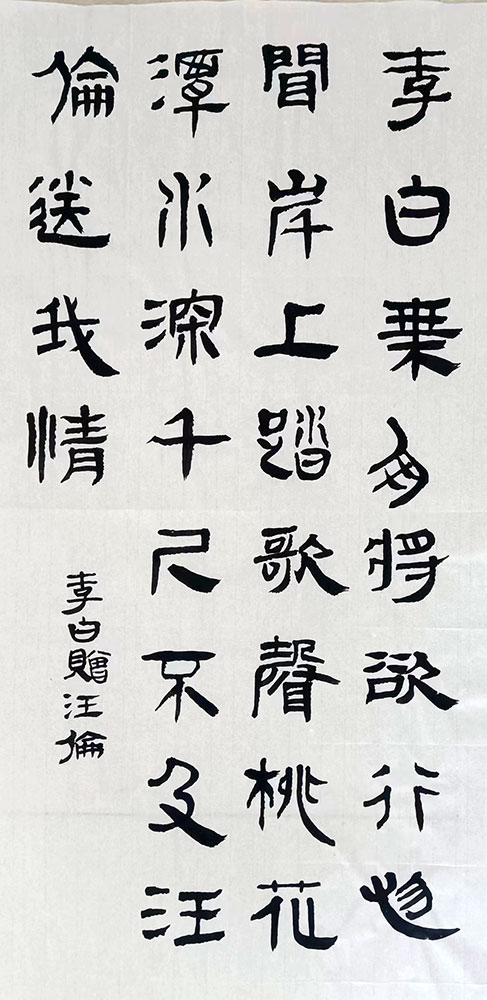 李白乗舟將欲行忽
聞岸上踏歌聲桃花
潭水深千尺不及汪
倫送我情
李白贈汪倫